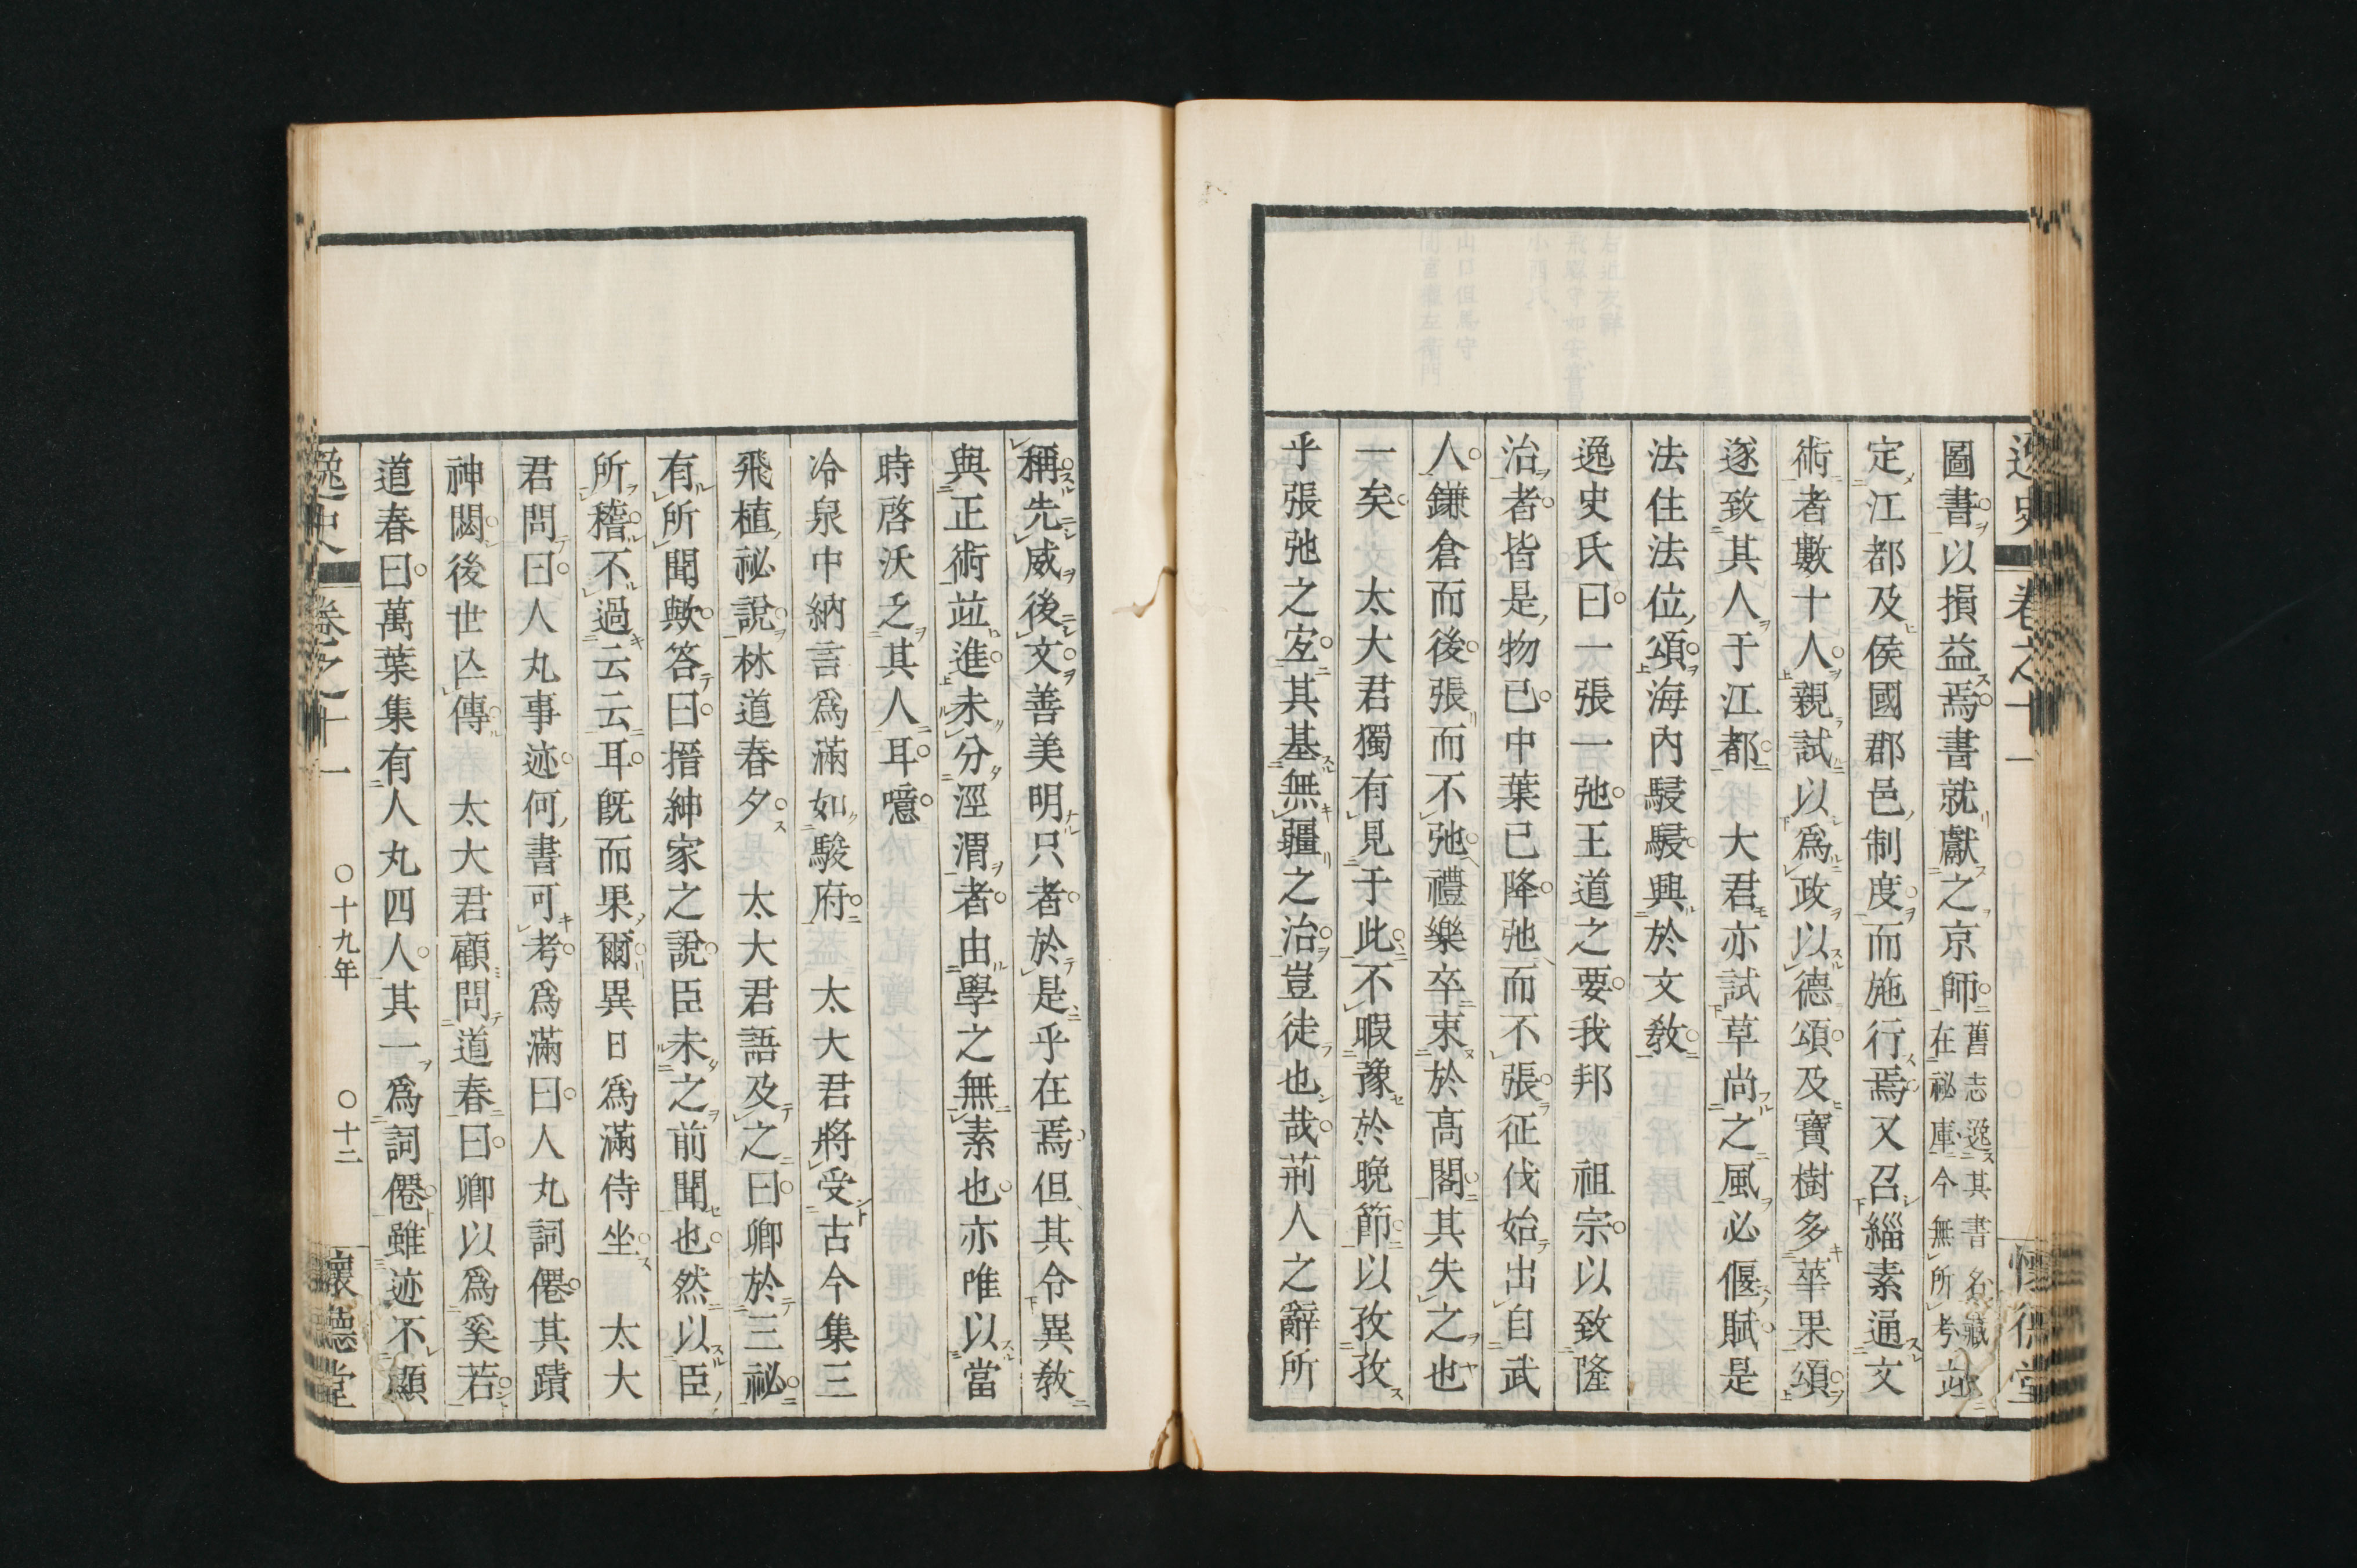 逸史
卷之十一
懷德堂
圖書以損益焉書就獻之京師舊志逸其書名藏在祕庫今無所考並
定江都及侯國郡邑制度而施行焉又召緇素通文
術者數十人親試以爲政以德頌及寶樹多華果頌
遂致其人于江都 大君亦試草尚之風必偃賦是
法住法位頌海內駸駸興於文教
逸史氏曰一張一弛王道之要我邦 祖宗以致隆
治者皆是物已中葉已降弛而不張征伐始出自武
人鎌倉而後張而不弛禮樂卒束於高閣其失之也
一矣 太大君獨有見于此不暇豫於晩節以孜孜
乎張弛之宜其基無疆之治豈徒也哉荊人之辭所
稱先威後文善美明只者於是乎在焉但其令異教
與正術並進未分涇渭者由學之無素也亦唯以當
時啓沃乏其人耳噫
冷泉中納言爲滿如駿府 太大君將受古今集三
飛植祕說林道春夕 太大君語及之曰卿於三祕
有所聞歟答曰搢紳家之說臣未之前聞也然以臣
所稽不過云云耳既而果爾異日爲滿侍坐 太大
君問曰人丸事迹何書可考爲滿曰人丸詞僊其蹟
神閟後世亾傳 太大君顧問道春曰卿以爲奚若
道春曰萬葉集有人丸四人其一爲詞僊雖迹不顯
逸史
卷之十一
○十九年
○十二
懷德堂